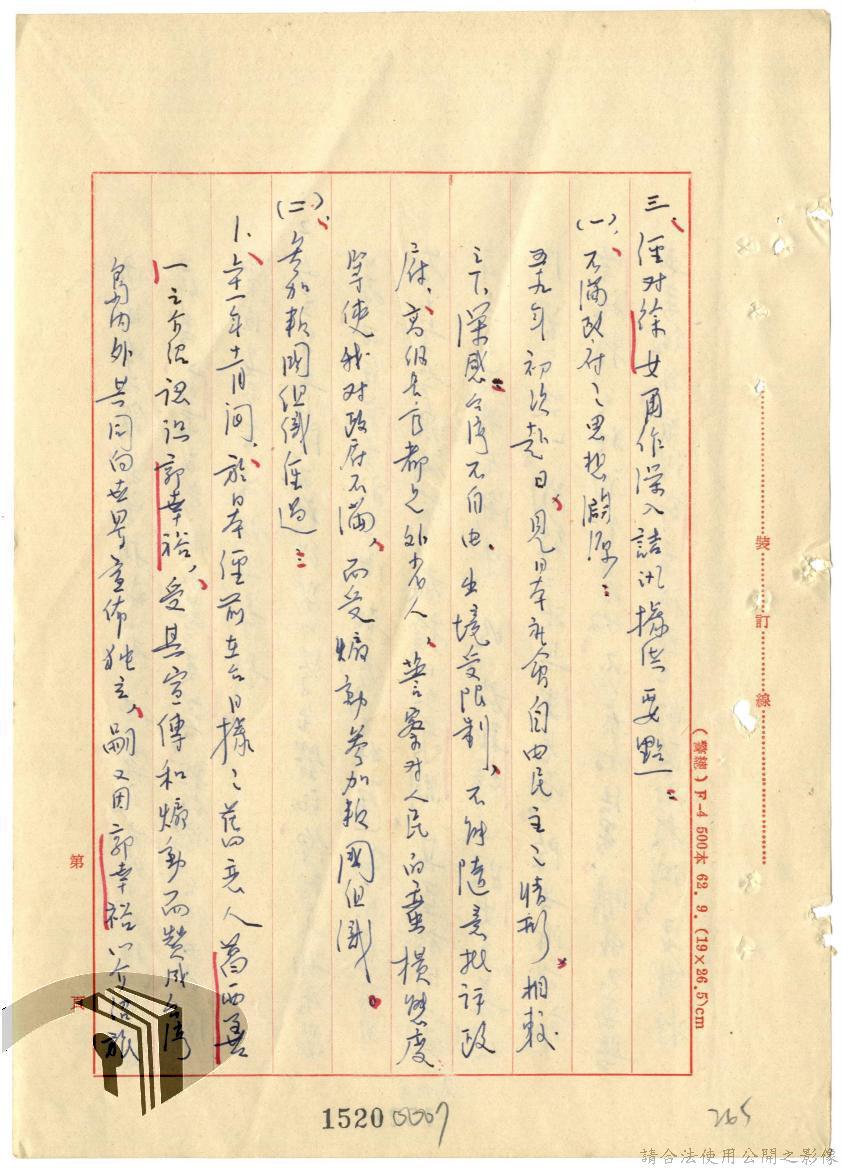 三、經对徐女再作深入詰訊據供要點：
(一)、不滿政府之思想淵源：
五九年初次赴日，見日本社會自由民主之情形，相較
之下，深感台湾不自由、出境受限制、不能隨意批評政
府、高級官員都是外省人、警察对人民的蠻橫態度
等使我对政府不滿，而受煽動參加叛國組織。
(二)、參加叛國組織經過：
1、六十一年十一月间，於日本經前在台日據之舊恋人葛西善
一之介紹認識郭幸裕，受其宣傳和煽動而贊成台湾
島内外共同向世界宣佈独立，嗣又因郭幸裕以介紹旅
裝 訂 線
(普通) F-4 500本 62. 9. (19×26.5)cm
第 頁
1520 0007
265
請合法使用公開之影像